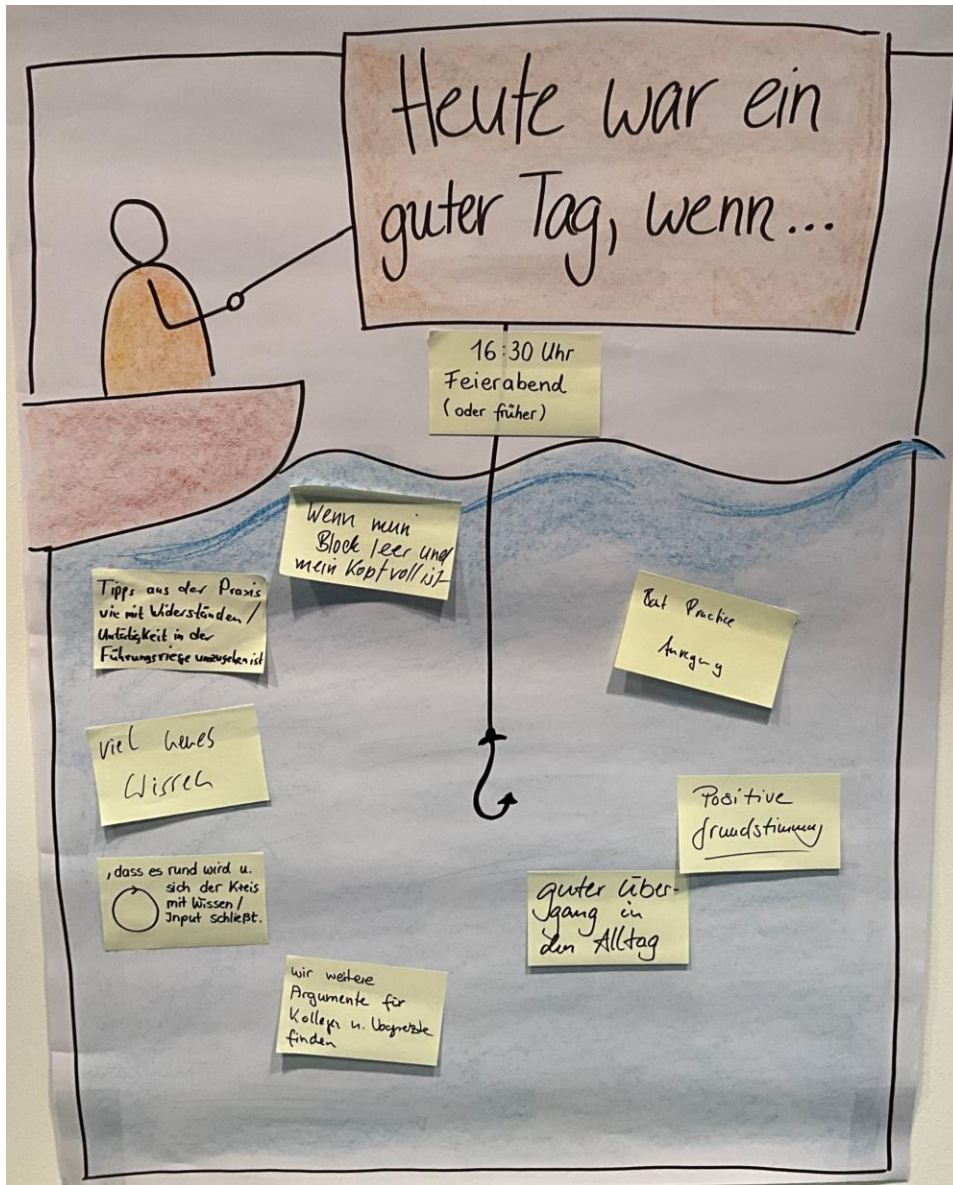 Heute war ein
guter Tag, wenn...
16:30 Uhr
Feierabend
(oder früher)
Wenn mein
Block leer und
mein Kopf voll ist
Tipps aus der Praxis
wie mit Widerständen /
Untätigkeit in der
Führungsriege umzugehen ist
Best Practice
Anregung
viel neues
Wissen
Positive
Grundstimmung
, dass es rund wird u.
sich der Kreis
mit Wissen /
Input schließt.
guter Über-
gang in
den Alltag
wir weitere
Argumente für
Kollegen u. Vorgesetzte
finden